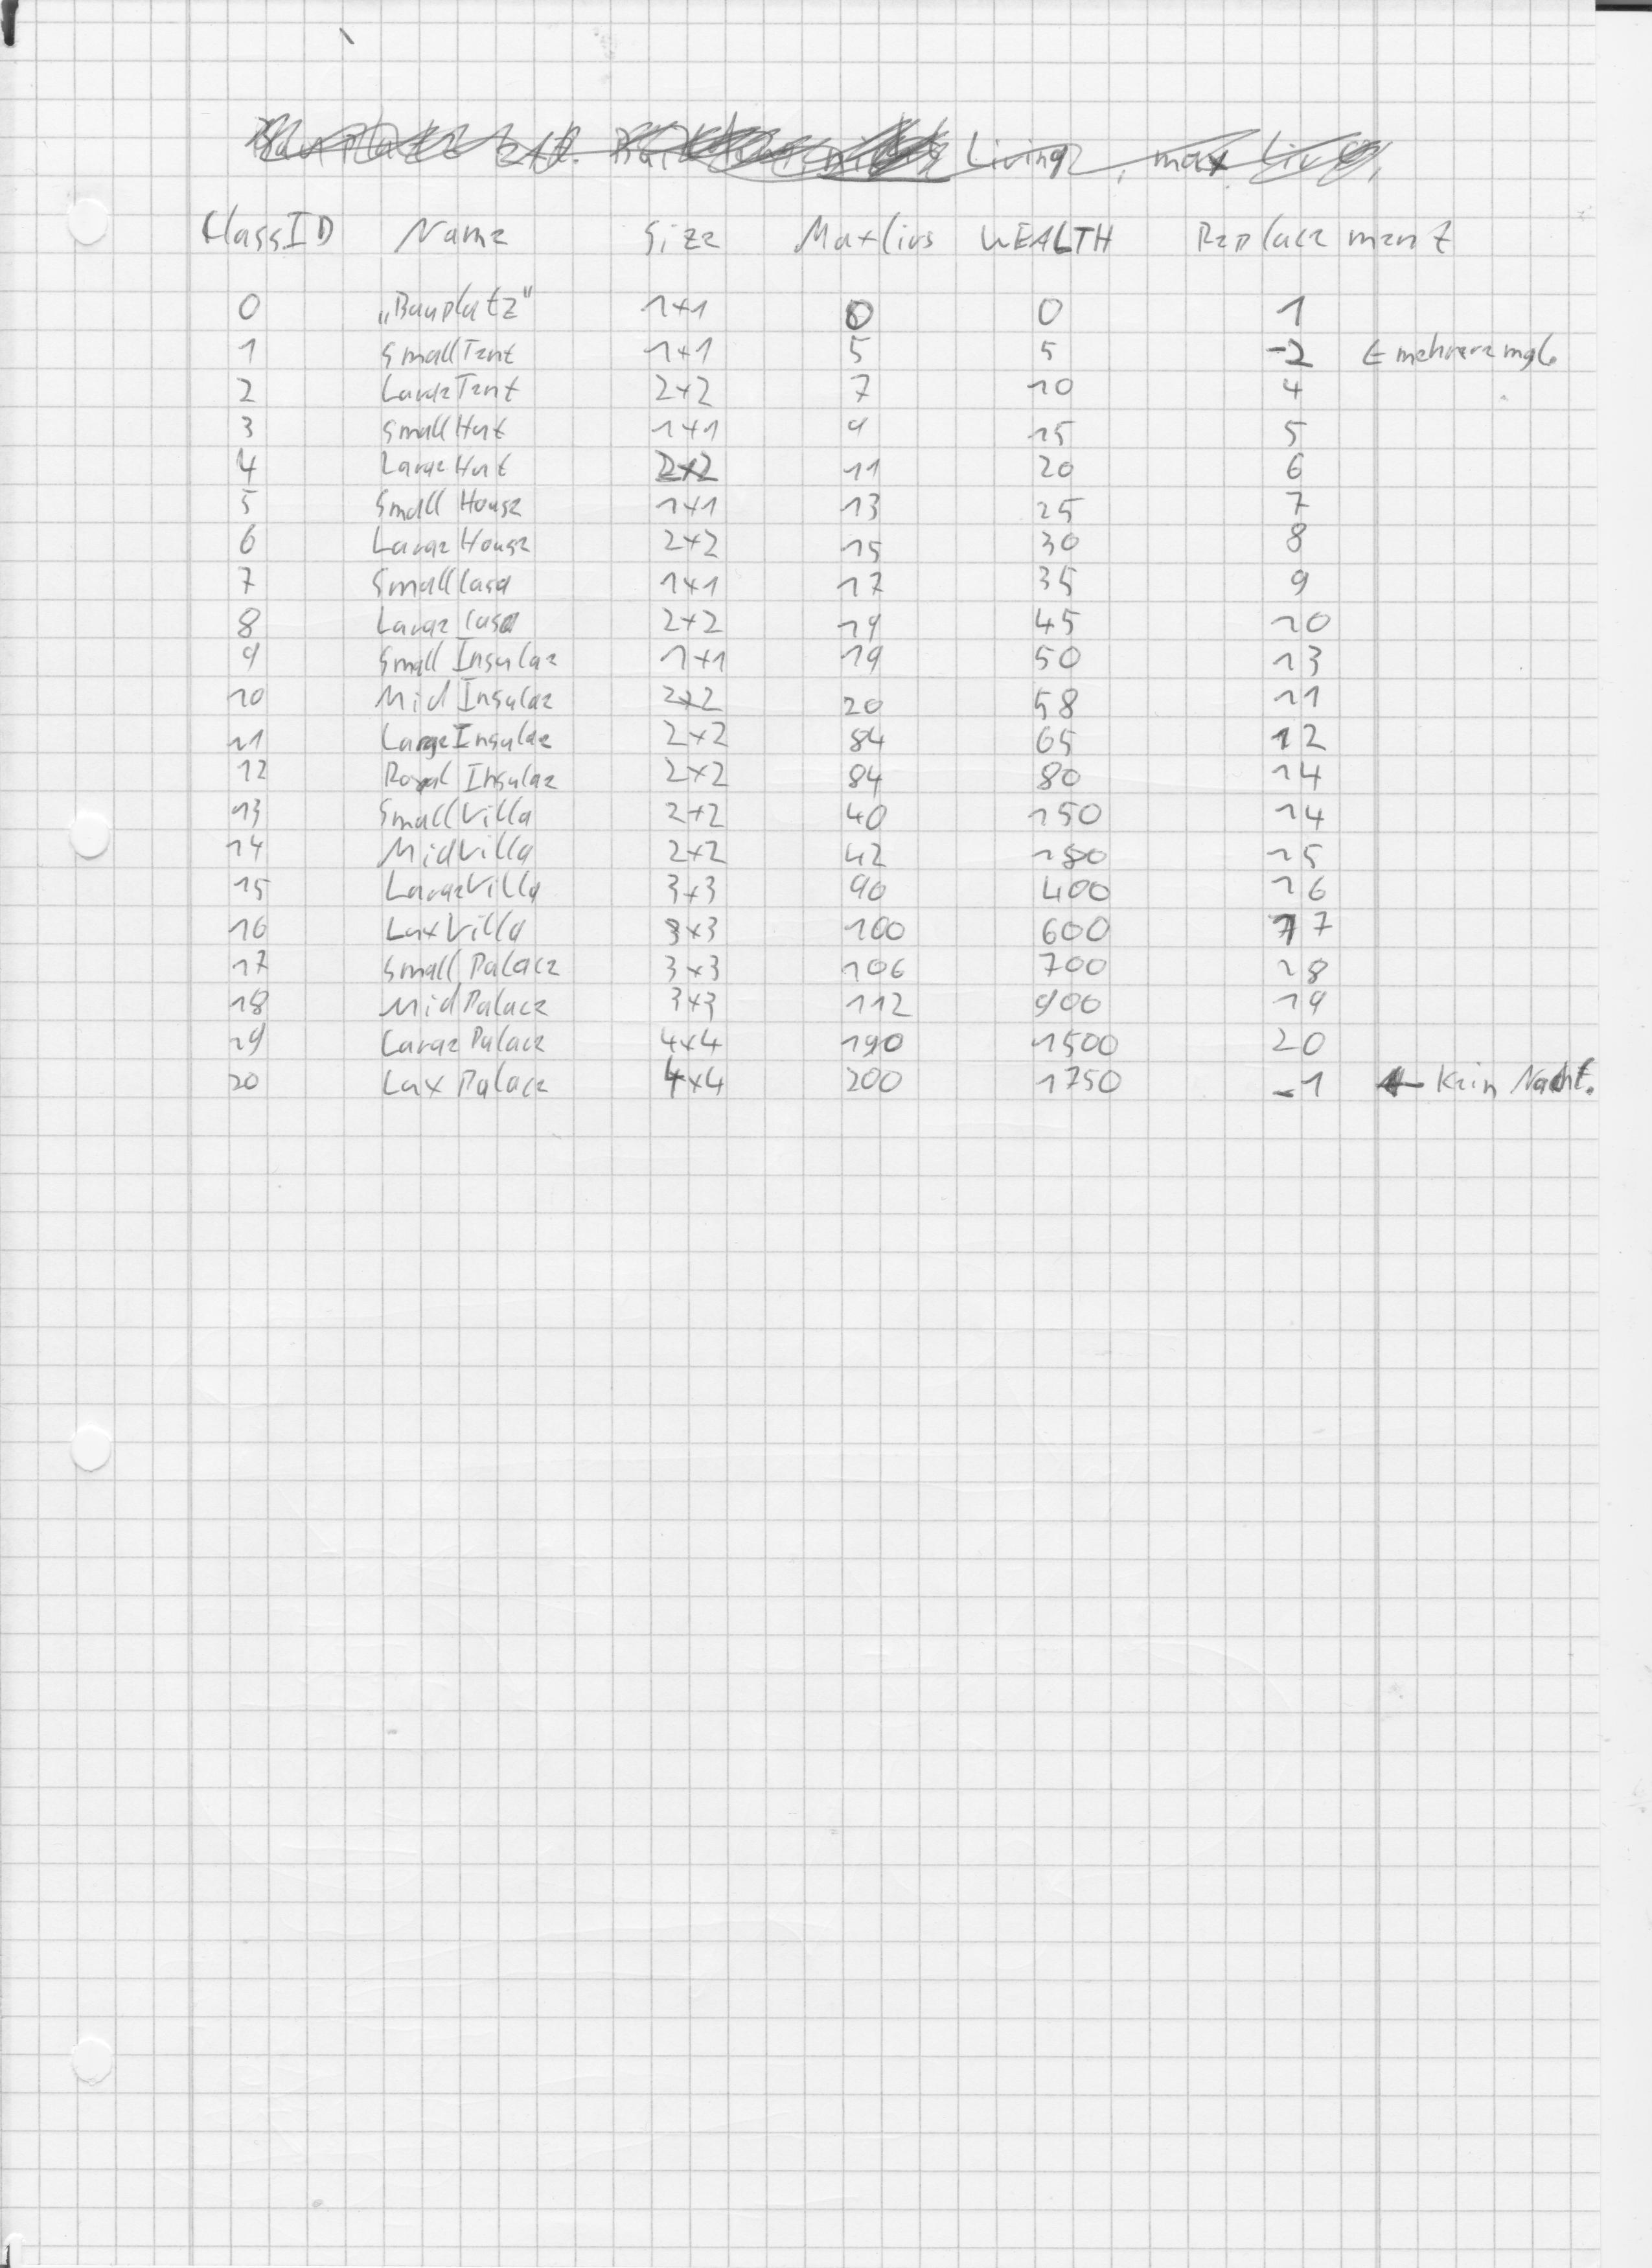 Living, max Living,
ClassID Name Size Maxlivs WEALTH Replacement
0 „Bauplatz" 1x1 0 0 1
1 SmallTent 1x1 5 5 -2 ← mehrere mgl.
2 LargeTent 2x2 7 10 4
3 SmallHut 1x1 9 15 5
4 LargeHut 2x2 11 20 6
5 Small House 1x1 13 25 7
6 LargeHouse 2x2 15 30 8
7 SmallCasa 1x1 17 35 9
8 LargeCasa 2x2 19 45 10
9 Small Insulae 1x1 19 50 13
10 Mid Insulae 2x2 20 58 11
11 LargeInsulae 2x2 84 65 12
12 Royal Insulae 2x2 84 80 14
13 SmallVilla 2x2 40 150 14
14 MidVilla 2x2 42 180 15
15 LargeVilla 3x3 90 400 16
16 LuxVilla 3x3 100 600 17
17 Small Palace 3x3 106 700 18
18 MidPalace 3x3 112 900 19
19 Large Palace 4x4 190 1500 20
20 Lux Palace 4x4 200 1750 -1 ← Kein Nachf.